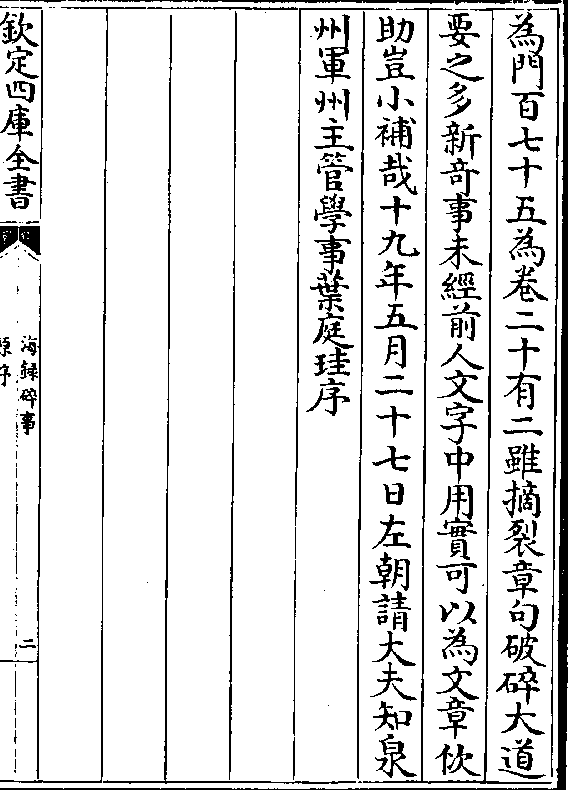 為門百七十五為卷二十有二雖摘裂章句破碎大道
要之多新奇事未經前人文字中用實可以為文章佽
助豈小補哉十九年五月二十七日左朝請大夫知泉
州軍州主管學事葉庭珪序
欽定四庫全書
海録碎事
原序
二